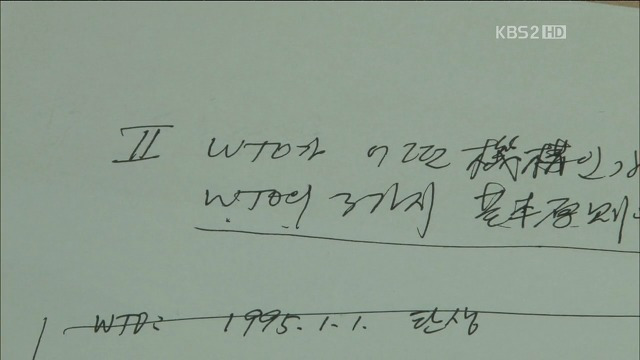 KBS2 HD
II WTO가 어떤 機構인가
WTO의 3가지 基本原則은
WTO: 1995.1.1. 탄생